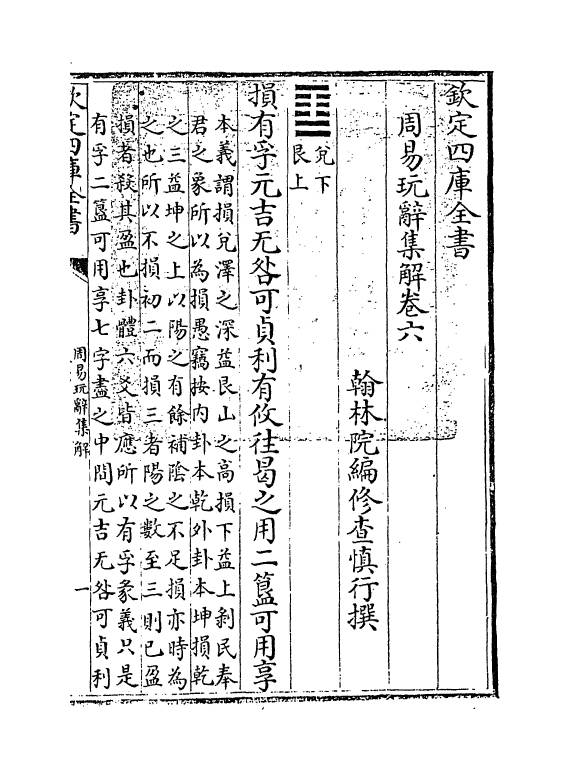 欽定四庫全書
周易玩辭集解卷六
翰林院編修查慎行撰
兌下
艮上
損有孚元吉无咎可貞利有攸往曷之用二簋可用享
本義謂損兌澤之深益艮山之高損下益上剥民奉
君之象所以為損愚竊按内卦本乾外卦本坤損乾
之三益坤之上以陽之有餘補陰之不足損亦時為
之也所以不損初二而損三者陽之數至三則已盈
損者殺其盈也卦體六爻皆應所以有孚彖義只是
有孚二簋可用享七字盡之中間元吉无咎可貞利
欽定四庫全書
周易玩辭集解
一